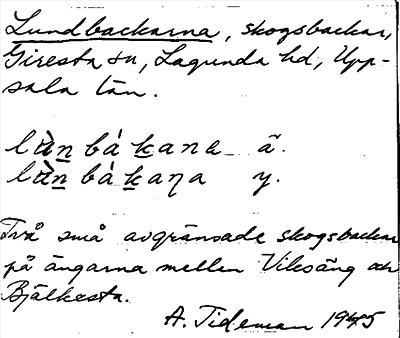 Lundbackarna, skogsbackar,
Giresta sn, Lagunda hd, Upp-
sala län.
lùn̲ bá k̲ana ä.
lùn̲ bá k̲aɳa y.
Två små avgränsade skogsbackar
på ängarna mellan Viksäng och
Bjälkesta.
A. Tideman 1945